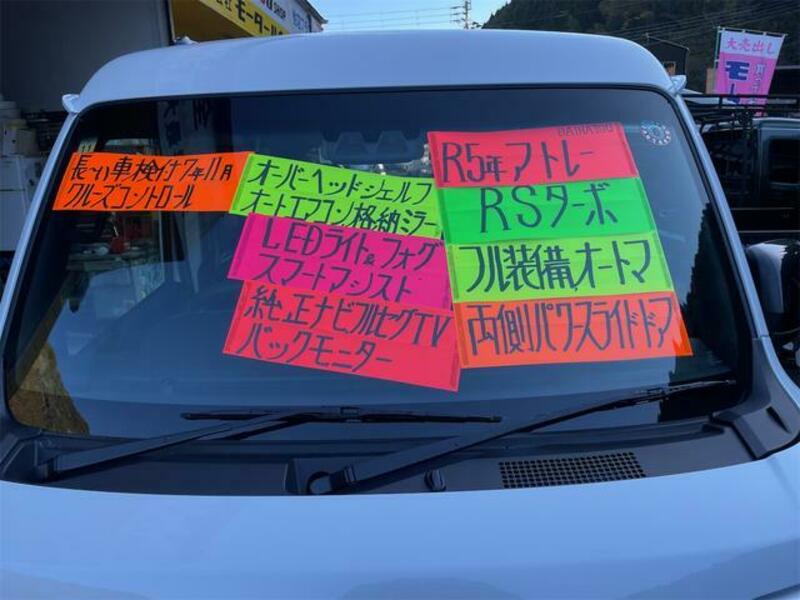 長~い車検付7年11月
クルーズコントロール
オーバーヘッドシェルフ
オートエアコン格納ミラー
LEDライト&フォグ
スマートアシスト
純正ナビフルセグTV
バックモニター
R5年アトレー
RSターボ
フル装備,オートマ
両側パワースライドドア
DAIHATSU
モータール
大売出し